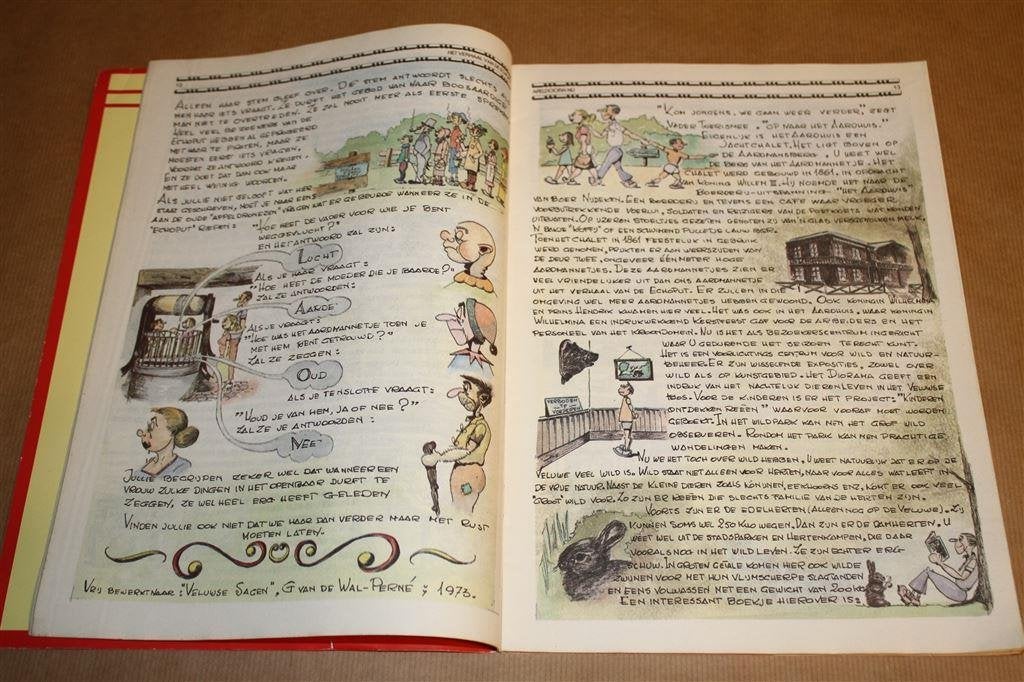 HET VERHAAL VAN DE
12
ALLEEN HAAR STEM BLEEF OVER. DE STEM ANTWOORDT SLECHTS ALS
MEN HAAR IETS VRAAGT. ZE DURFT HET GEBOD VAN HAAR BOOSAARDIGE
MAN NIET TE OVERTREDEN. ZE ZAL NOOIT MEER ALS EERSTE
HEEL VEEL BEZOEKERS VAN DE
ECHOPUT HEBBEN AL GEPROBEERD
MET HAAR TE PRATEN, MAAR ZE
MOESTEN EERST IETS VRAGEN,
VOORDAT ZE ANTWOORD KREGEN.
EN ZE DOET DAT DAN OOK MAAR
MET HEEL WEINIG WOORDEN.
ALS JULLIE NIET GELOOFT WAT HIER
STAAT GESCHREVEN, MOET JE MAAR EENS
AAN DE OUDE "APPELDRONKEN" VRAGEN WAT ER GEBEURDE WANNEER ZE IN DE
"ECHOPUT" RIEPEN:
"HOE HEET DE VADER VOOR WIE JE BENT
WEGGEVLUCHT?"
EN HET ANTWOORD ZAL ZIJN:
LUCHT
ALS JE HAAR VRAAGT:
"HOE HEET DE MOEDER DIE JE BAARDE?"
ZAL ZE ANTWOORDEN:
AARDE
ALS JE VRAAGT:
"HOE WAS HET AARDMANNETJE TOEN JE
MET HEM BENT GETROUWD?"
ZAL ZE ZEGGEN:
OUD
ALS JE TENSLOTTE VRAAGT:
"HOUD JE VAN HEM, JA OF NEE?"
ZAL ZE JE ANTWOORDEN:
NEE
JULLIE BEGRIJPEN ZEKER WEL DAT WANNEER EEN
VROUW ZULKE DINGEN IN HET OPENBAAR DURFT TE
ZEGGEN, ZE WEL HEEL ERG HEEFT GELEDEN
VINDEN JULLIE OOK NIET DAT WE HAAR DAN VERDER MAAR MET RUST
MOETEN LATEN.
VRIJ BEWERKT NAAR: "VELUWSE SAGEN", G VAN DE WAL-PERNÉ; 1973.
13
"KOM JONGENS, WE GAAN WEER VERDER," ZEGT
VADER TOERISMEE. "OP NAAR HET AARDHUIS."
EIGENLIJK IS HET AARDHUIS EEN
JACHTCHALET. HET LIGT BOVEN OP
DE AARDMANSBERG. U WEET WEL
DE BERG VAN HET AARDMANNETJE. HET
CHALET WERD GEBOUWD IN 1861, IN OPDRACHT
VAN KONING WILLEM III. HIJ NOEMDE HET NAAR DE
BOERDERIJ-UITSPANNING: "HET AARDHUIS"
VAN BOER NIJDEKEN. EEN BOERDERIJ EN TEVENS EEN CAFE WAAR VROEGER
VOORBIJTREKKENDE VOERLUI, SOLDATEN EN REIZIGERS VAN DE POSTKOETS WAT KONDEN
UITRUSTEN. OP IJZEREN STOELTJES GEZETEN GENOTEN ZIJ 'N GLAS VERSGEMOLKEN MELK,
'N BAKJE "KOFFIJ" OF EEN SCHUIMEND PULLETJE LAUW BIER.
TOEN HET CHALET IN 1861 FEESTELIJK IN GEBRUIK
WERD GENOMEN, PRIJKTEN ER AAN WEERSZIJDEN VAN
DE DEUR TWEE, ONGEVEER EEN METER HOGE
AARDMANNETJES. DEZE AARDMANNETJES ZIEN ER
VEEL VRIENDELIJKER UIT DAN ONS AARDMANNETJE
UIT HET VERHAAL VAN DE ECHOPUT. ER ZULLEN IN DIE
OMGEVING WEL MEER AARDMANNETJES HEBBEN GEWOOND. OOK KONINGIN WILHELMINA
EN PRINS HENDRIK KWAMEN HIER VEEL. HET WAS OOK IN HET AARDHUIS, WAAR KONINGIN
WILHELMINA EEN INDRUKWEKKEND KERSTFEEST GAF VOOR DE ARBEIDERS EN HET
PERSONEEL VAN HET KROONDOMEIN. NU IS HET ALS BEZOEKERSCENTRUM INGERICHT
WAAR U GEDURENDE HET SEIZOEN TERECHT KUNT.
HET IS EEN VOORLICHTINGS CENTRUM VOOR WILD EN NATUUR-
BEHEER. ER ZIJN WISSELENDE EXPOSITIES, ZOWEL OVER
WILD ALS OP KUNSTGEBIED. HET DIORAMA GEEFT EEN
INDRUK VAN HET NACHTELIJK DIERENLEVEN IN HET VELUWSE
BOS. VOOR DE KINDEREN IS ER HET PROJECT: "KINDEREN
ONTDEKKEN REEËN" WAARVOOR VOORAF MOET WORDEN
GEBOEKT. IN HET WILDPARK KAN MEN HET GROF WILD
OBSERVEREN. RONDOM HET PARK KAN MEN PRACHTIGE
WANDELINGEN MAKEN.
VERBODEN
TE
NU WE HET TOCH OVER WILD HEBBEN, U WEET NATUURLIJK DAT ER OP DE
VELUWE VEEL WILD IS. WILD STAAT NIET ALLEEN VOOR HERTEN, MAAR VOOR ALLES WAT LEEFT IN
DE VRIJE NATUUR. NAAST DE KLEINE DIEREN ZOALS KONIJNEN, EEKHOORNS ENZ, KOMT ER OOK VEEL
'GROOT' WILD VOOR. ZO ZIJN ER REEËN DIE SLECHTS FAMILIE VAN DE HERTEN ZIJN.
VOORTS ZIJN ER DE EDELHERTEN (ALLEEN NOG OP DE VELUWE). ZIJ
KUNNEN SOMS WEL 250 KILO WEGEN. DAN ZIJN ER DE DAMHERTEN. U
WEET WEL UIT DE STADSPARKEN EN HERTENKAMPEN, DIE DAAR
VOORAL SNOG IN HET WILD LEVEN. ZE ZIJN ECHTER ERG
SCHUW. IN GROTEN GETALE KOMEN HIER OOK WILDE
ZWIJNEN VOOR MET HUN VLIJMSCHERPE SLAGTANDEN
EN EENS VOLWASSEN MET EEN GEWICHT VAN 200 KILO
EEN INTERESSANT BOEKJE HIEROVER IS: